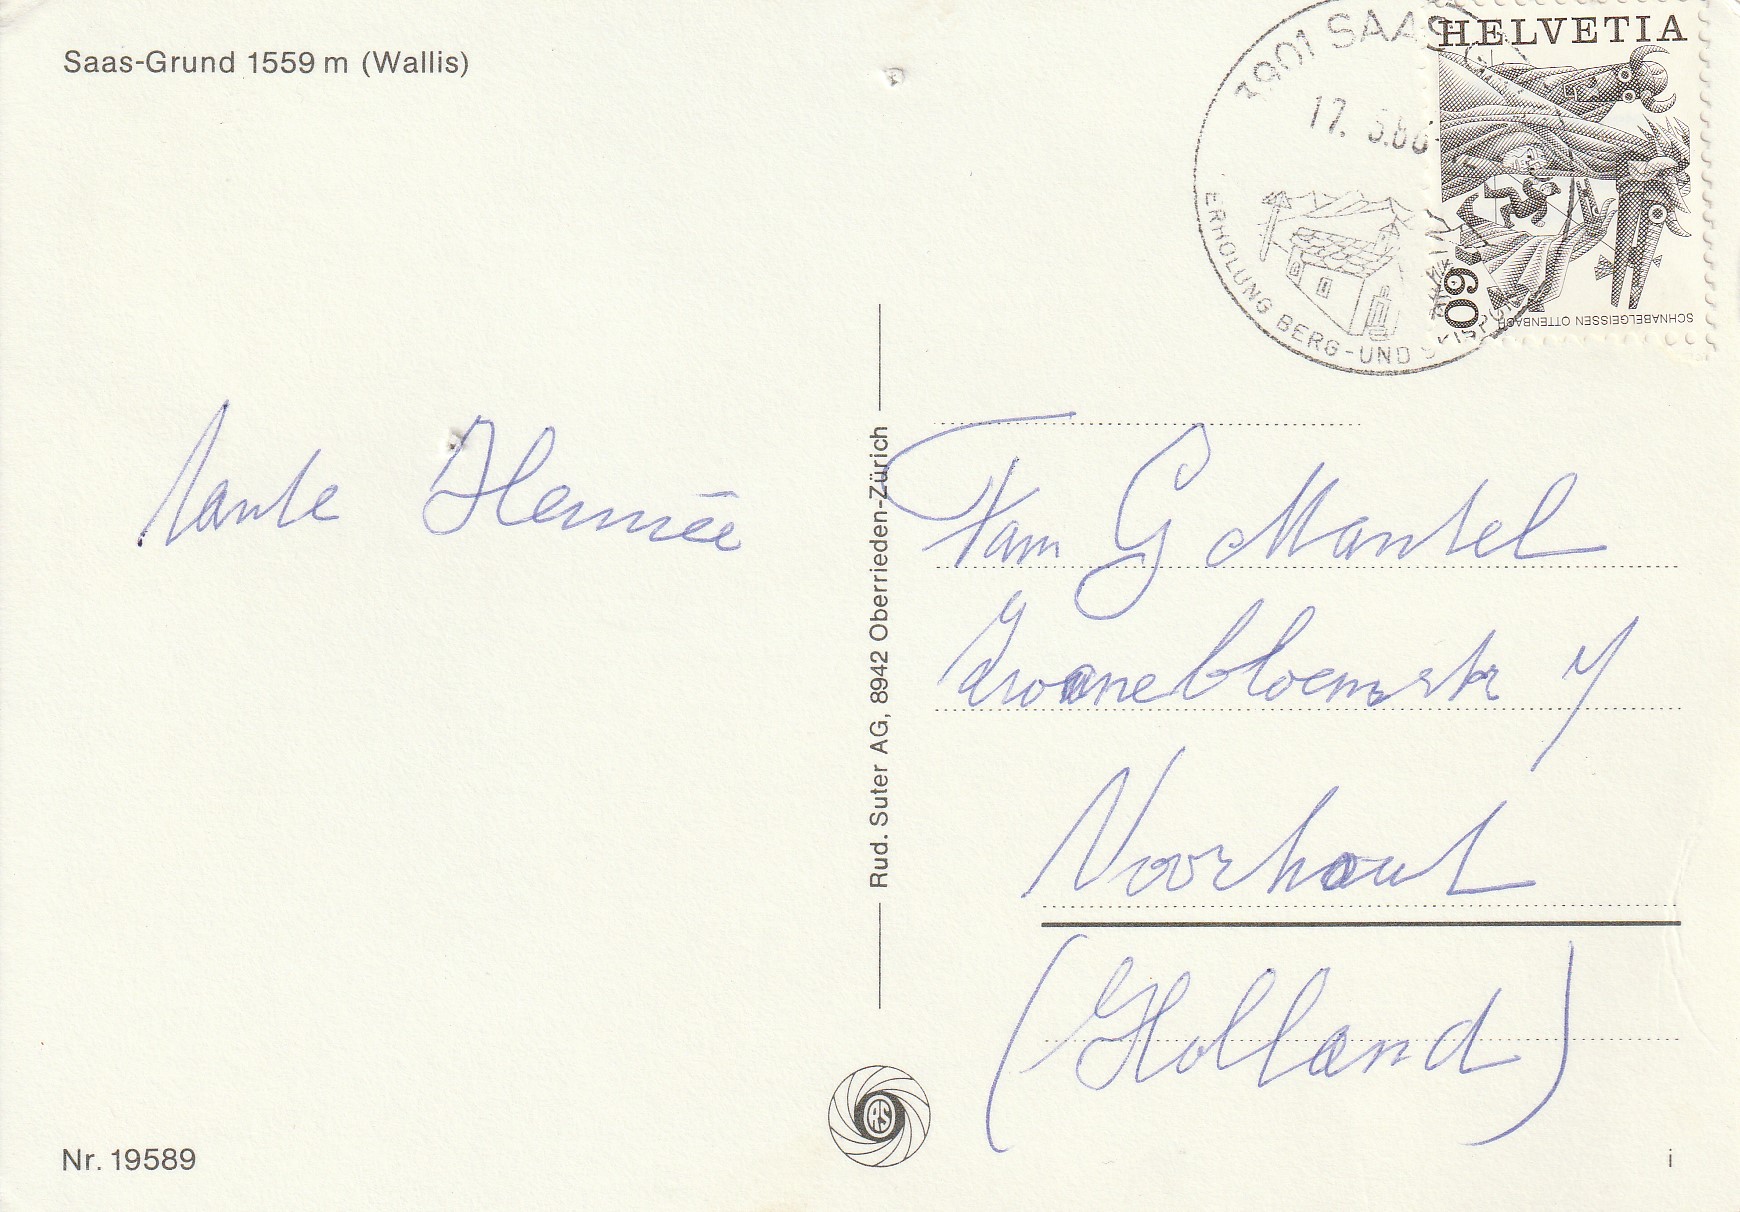 Saas-Grund 1559 m (Wallis)
3901 SAAS
17. 3.86
ERHOLUNG BERG-UND
HELVETIA
60
SCHNABELGEISSEN OTTENBACH
tante
Fam G Mantel
7
Voorhout
(Holland)
Rud. Suter AG, 8942 Oberrieden-Zürich
RS
Nr. 19589
i